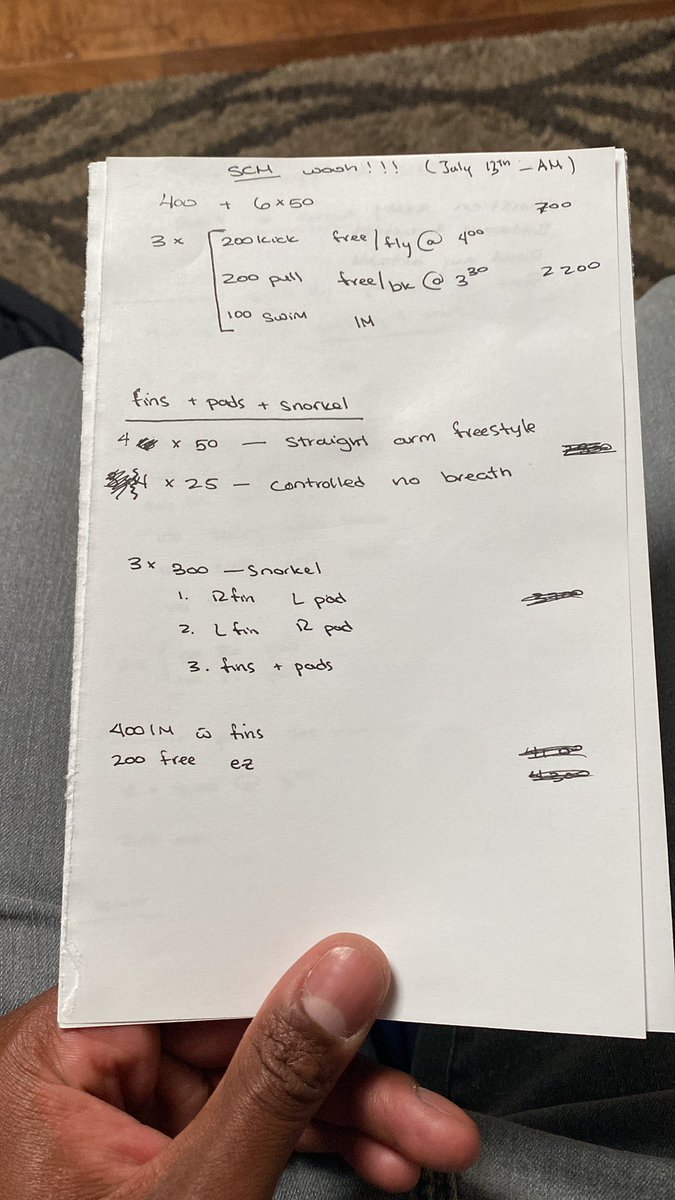 SCM woah!!! (July 13th - AM)
400 + 6x50 700
3x 200 kick free/fly @ 4 00
200 pull free/bk @ 3 30 2200
100 swim IM
fins + pads + snorkel
4 x 50 — straight arm freestyle
4 x 25 — controlled no breath
3x 300 — snorkel
1. R fin L pad
2. L fin R pad
3. fins + pads
400 IM w fins
200 free ez